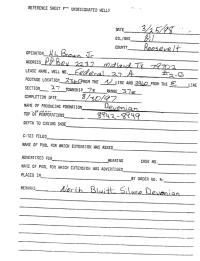 REFERENCE SHEET UNDESIGNATED WELLS
DATE 3/25/98
OIL/GAS Oil
COUNTY Roosevelt
OPERATOR HL Brown Jr
ADDRESS PO Box 2237 Midland Tx 79702
LEASE NAME, WELL NO. Federal 27 A #2-G
FOOTAGE LOCATION FROM THE N LINE AND FROM THE E LINE
SECTION 27 TOWNSHIP 7s RANGE 37e
COMPLETION DATE
NAME OF PRODUCING FORMATION Devonian
TOP OF PERFORATIONS 8942-8949
DEPTH TO CASING SHOE
C-123 FILED
NAME OF POOL FOR WHICH EXTENSION WAS ASKED
ADVERTISED FOR HEARING CASE NO.
NAME OF POOL FOR WHICH EXTENSION WAS ADVERTISED
PLACED IN BY ORDER NO. R-
REMARKS North Bluitt Siluro Devonian